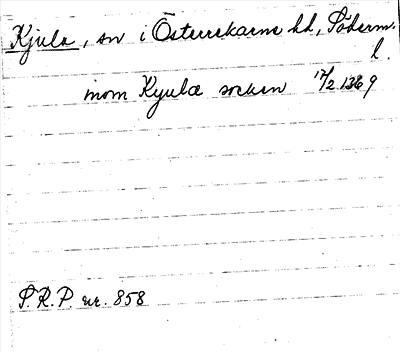 Kjula, sn i Österrekarne hd, Söderm.
l.
inom Kyulæ socken 17/2 1369
S.R.P. nr. 858